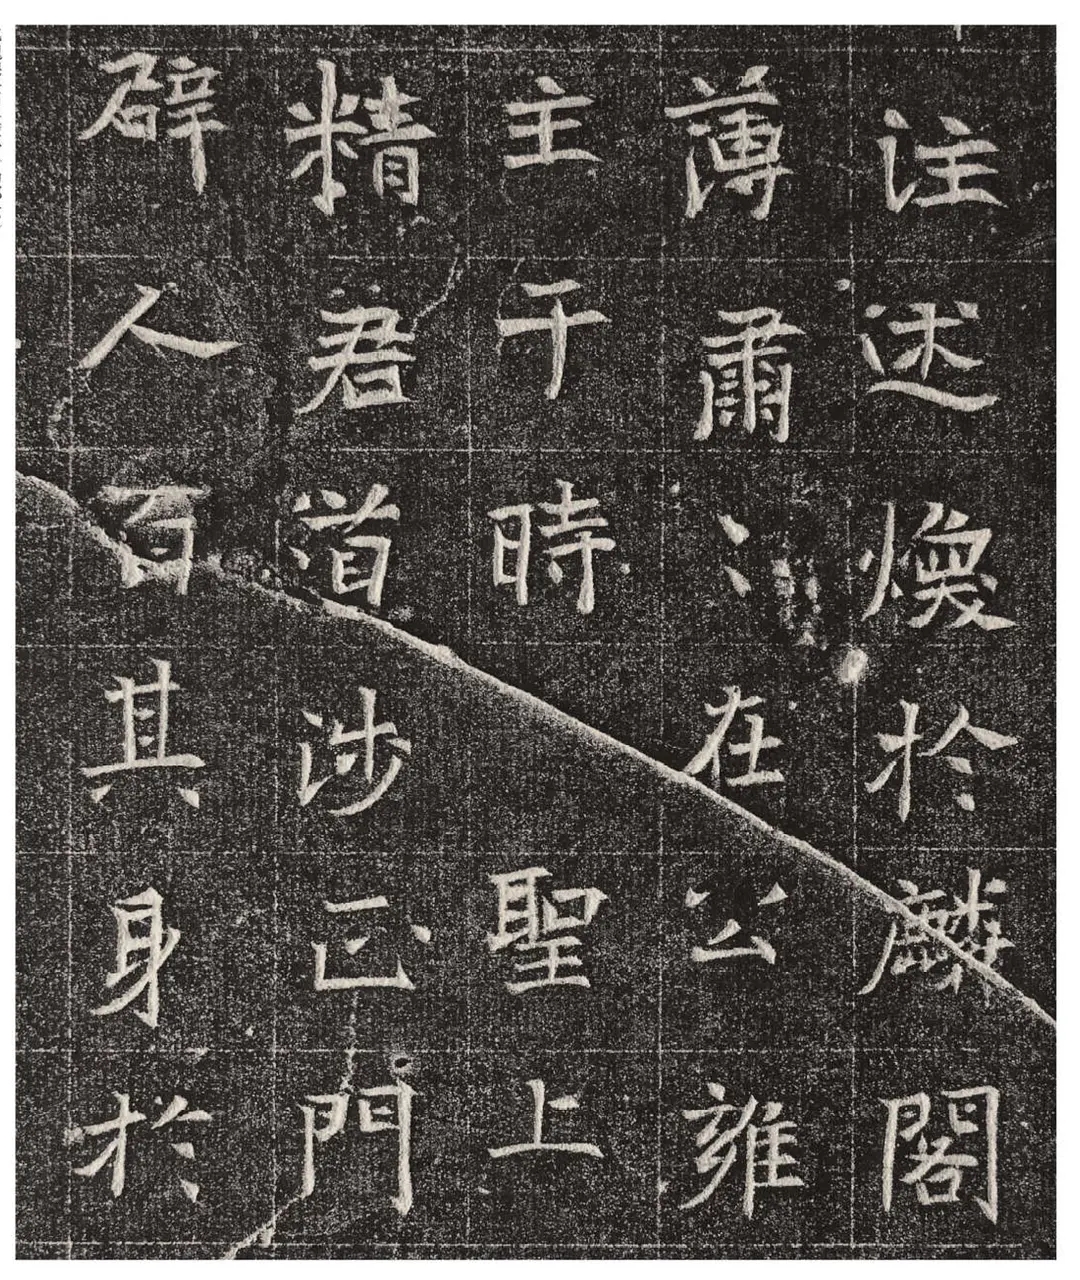 注述煥於麟閣
薄肅〻在公雍
主于時聖上
精君道涉門
辟人百其身於